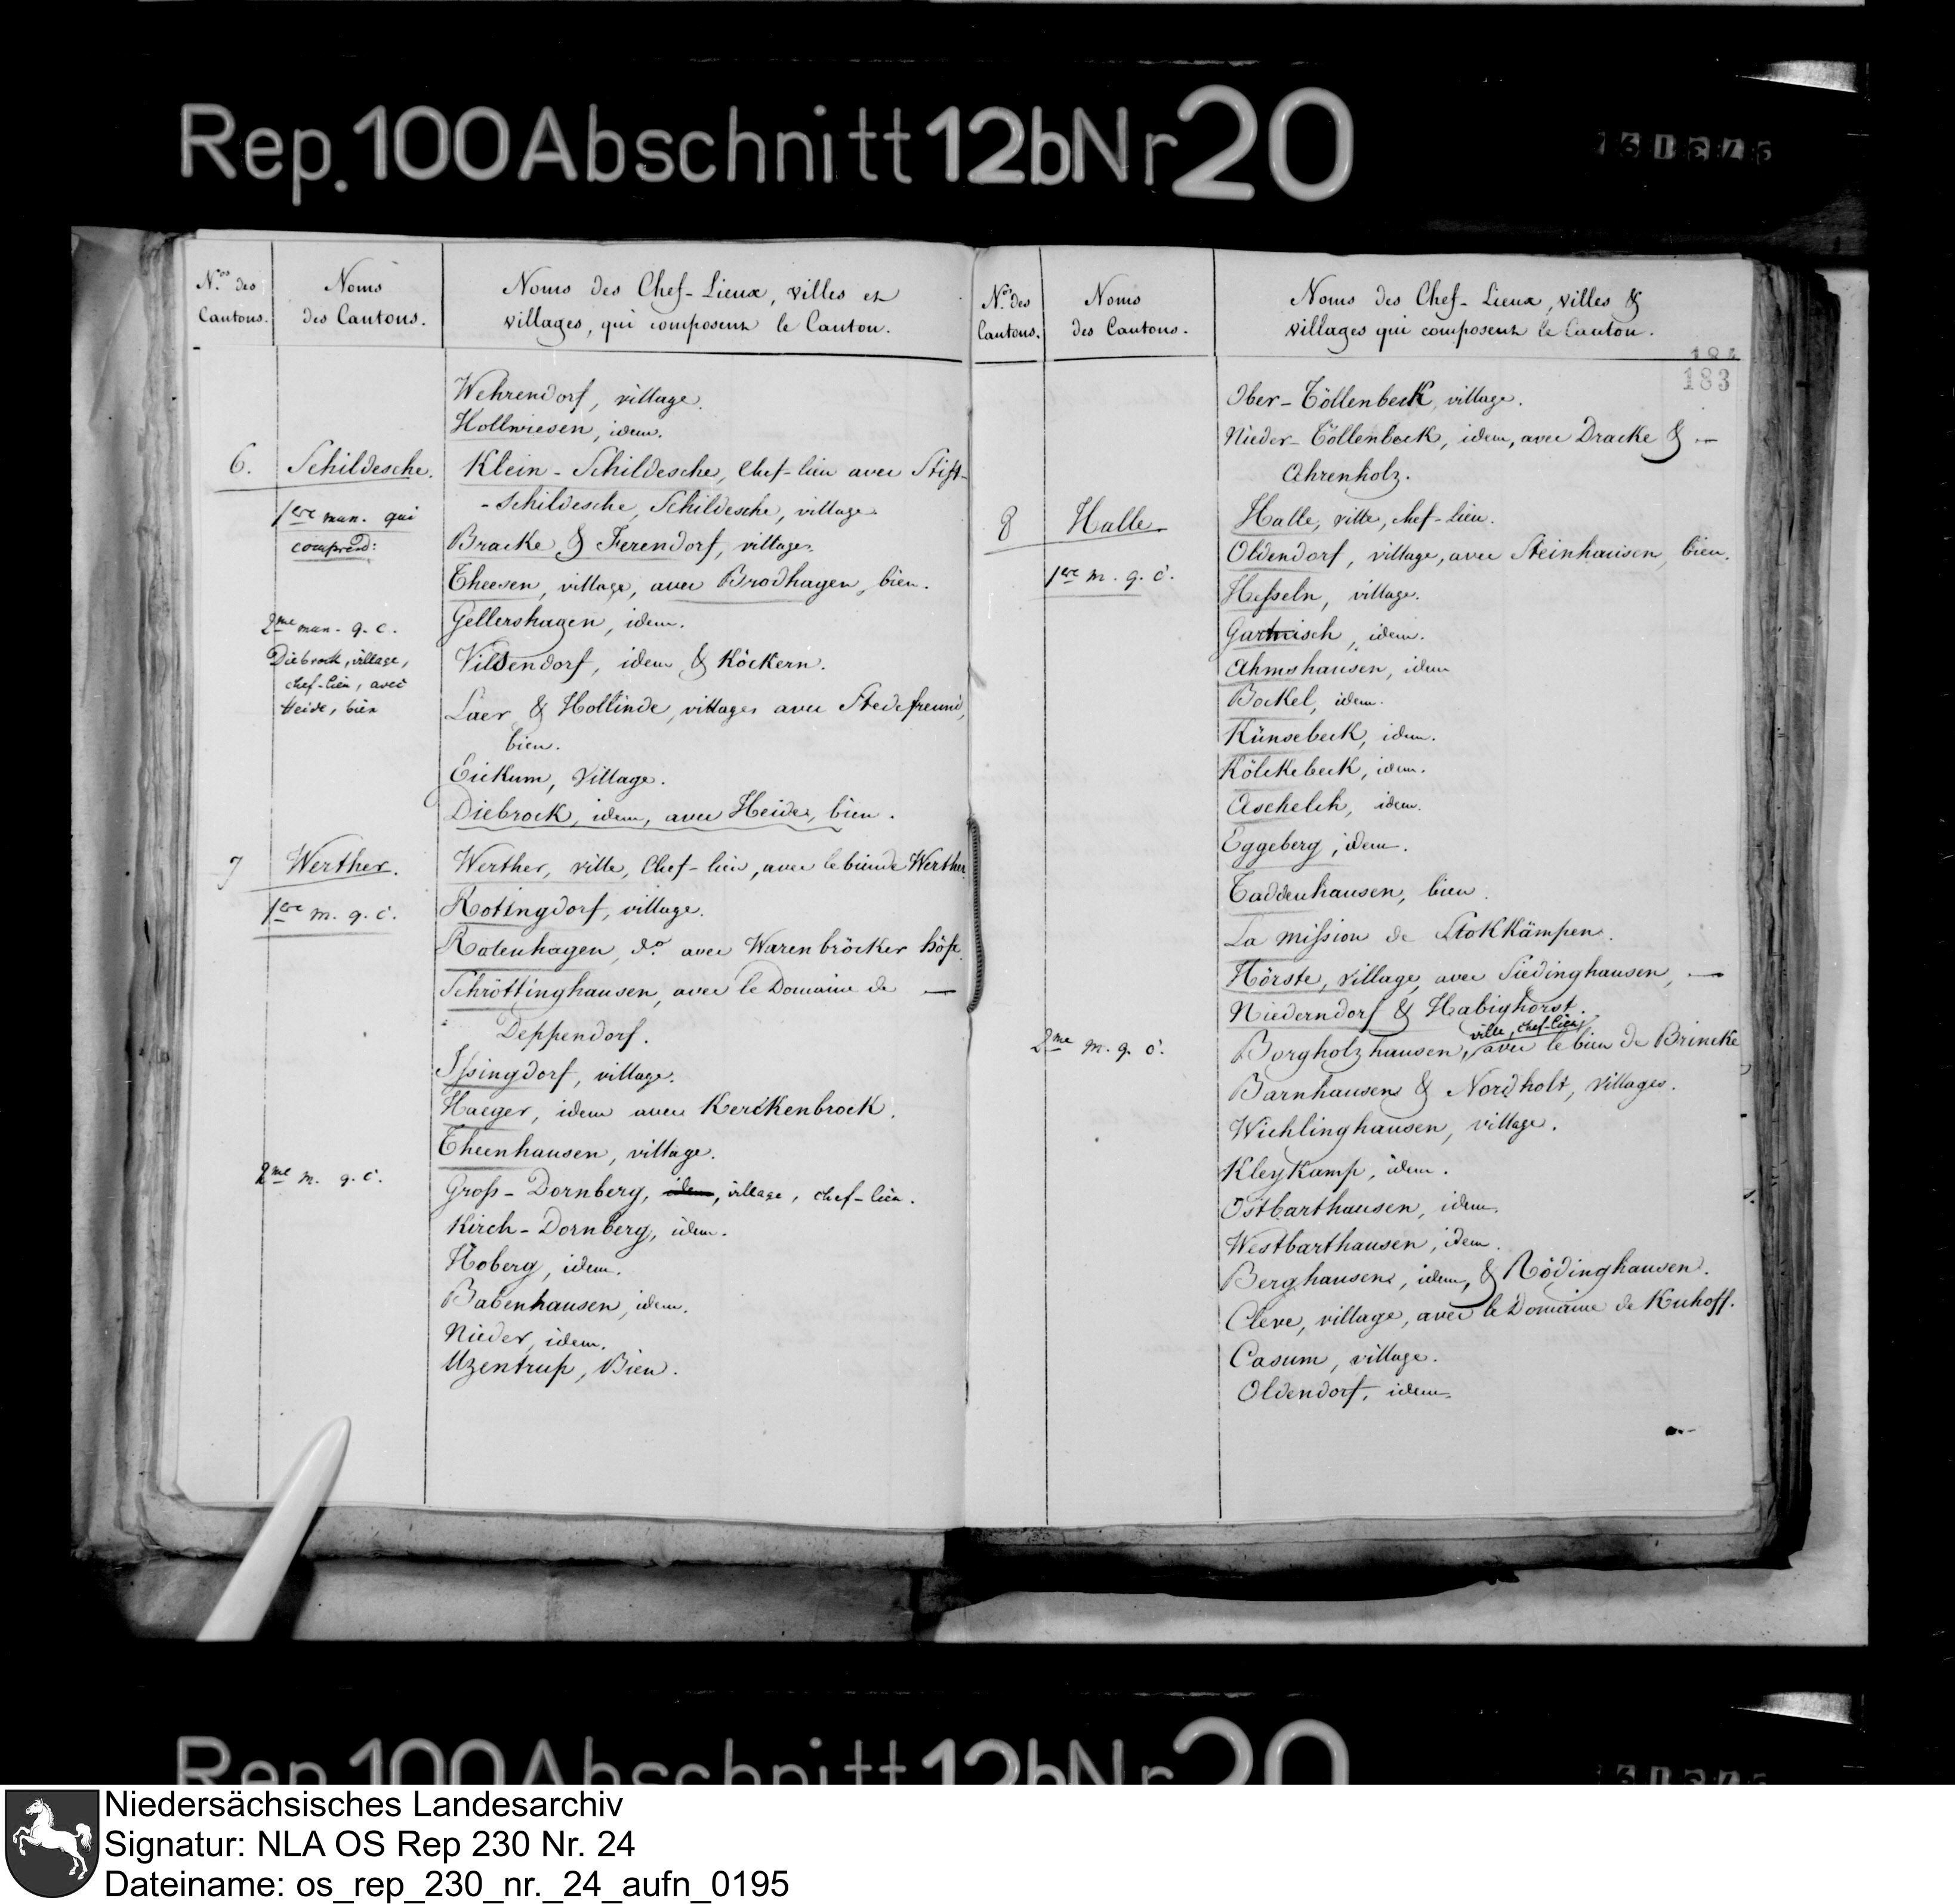 Rep. 100 Abschnitt 12b Nr 20
N.os des
Cantons.
Noms
des Cantons.
Noms des Chef-Lieux, villes et
villages, qui composent le Canton.
Wehrendorf, village.
Hollwiesen, idem.
6. Schildesche. Klein-Schildesche, Chef-lieu avec Stift-
-Schildesche, Schildesche, village
1ere mun. qui
comprend:
Bracke & Ferendorf, villages.
Theesen, village, avec Brodhagen, bien.
Gellershagen, idem.
2me mun. q. c.
Diebrock, village,
chef-lieu, avec
Heide, bien
Vilsendorf, idem & Köckern.
Laer & Hollinde, villages avec Stedefreund,
bien.
Eickum, Village.
Diebrock, idem, avec Heide, bien.
7 Werther. Werther, ville, Chef-lieu, avec le bien de Werther
1ere m. q. c. Rotingdorf, village.
Rotenhagen, do. avec Warenbröcker höfe.
Schröttinghausen, avec le Domaine de —
Deppendorf.
Issingdorf, village.
Haeger, idem avec Kerckenbrock.
Theenhausen, village.
2me m. q. c. Gross-Dornberg, idem, village, chef-lieu.
Kirch-Dornberg, idem.
Hoberg, idem.
Babenhausen, idem.
Nieder, idem.
Uzentrup, Bien.
N.os des
Cantons.
Noms
des Cantons.
Noms des Chef-Lieux, villes &
villages qui composent le Canton.
183
Ober-Töllenbeck, village.
Nieder-Töllenbeck, idem, avec Dracke & —
Ahrenholz.
8 Halle Halle, ville, chef-lieu.
Oldendorf, village, avec Steinhausen, bien.
1ere m. q. c. Hesseln, village.
Gartnisch, idem.
Ahmshausen, idem
Bockel, idem.
Künsebeck, idem.
Kölckebeck, idem.
Aschelch, idem.
Eggeberg, idem.
Taddenhausen, bien.
La Mission de Stokkämpen.
Hörste, village, avec Siedinghausen, —
Niederndorf & Habighorst.
ville, chef-lieu,
2me m. q. c. Borgholzhausen, avec le bien de Brincke
Barnhausen & Nordholt, Villages.
Wichlinghausen, village.
Kleykamp, idem.
Ostbarthausen, idem.
Westbarthausen, idem.
Berghausen, idem, & Rödinghausen.
Cleve, village, avec le Domaine de Kuhoff.
Casum, village.
Oldendorf, idem.
Rep. 100 Abschnitt 12b Nr 20
Niedersächsisches Landesarchiv
Signatur: NLA OS Rep 230 Nr. 24
Dateiname: os_rep_230_nr._24_aufn_0195